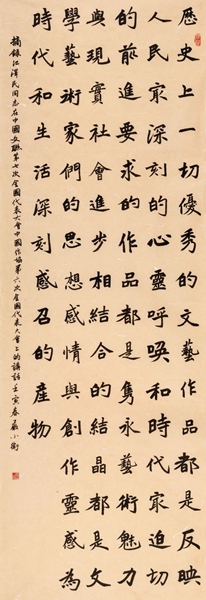 歷史上一切優秀的文藝作品都是反映
人民㝡深刻的心靈呼喚和時代㝡迫切
的前進要求的作品都是雋永藝術魅力
與現實社會進步相結合的結晶都是文
學藝術家們的思想感情與創作靈感為
時代和生活深刻感召的產物
摘錄江澤民同志在中國文聯第七次全國代表大會中國作協第六次全國代表大會上的講話壬寅春